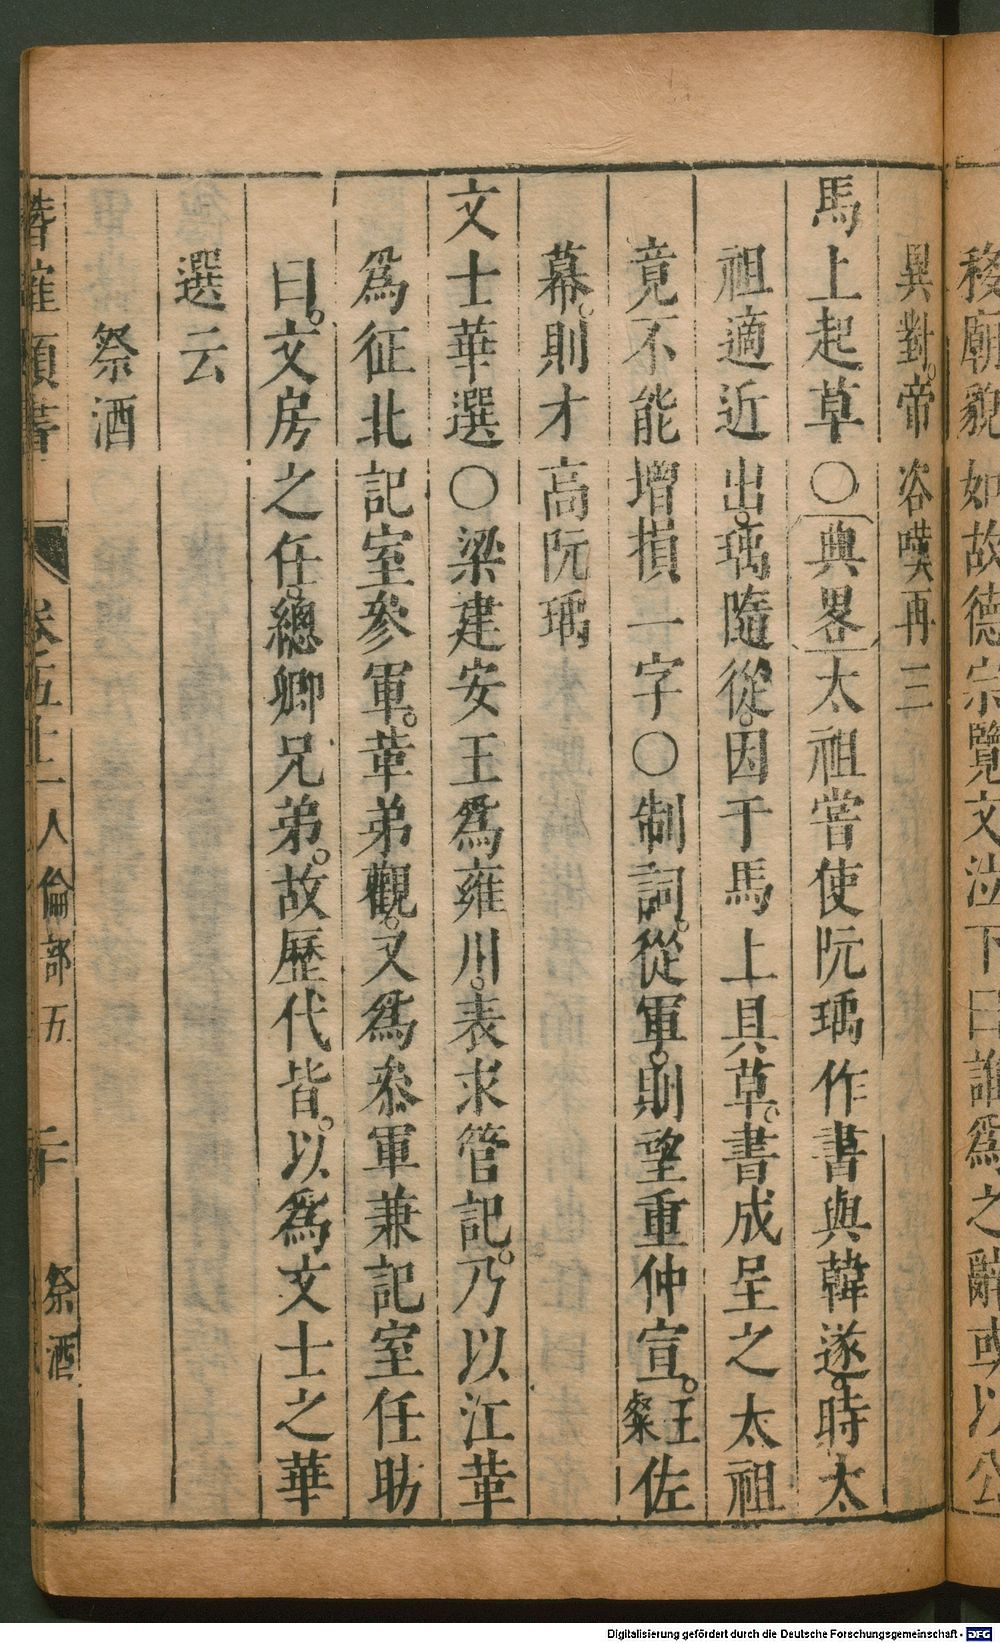 移廟貌如故德宗覽文泣下曰誰爲之辭或以公
異對帝咨嘆再三
馬上起草〇典畧太祖嘗使阮瑀作書與韓遂時太
祖適近出瑀隨從因于馬上具草書成呈之太祖
竟不能增損一字〇制詞從軍則望重仲宣王粲佐
幕則才高阮瑀
文士華選〇梁建安王爲雍川表求管記乃以江革
爲征北記室參軍革弟觀又爲叅軍兼記室任昉
曰文房之任總卿兄弟故歷代皆以爲文士之華
選云
祭酒
潛確類書 卷五十一 人倫部五 二十 祭酒
Digitalisierung gefördert durch die Deutsche Forschungsgemeinschaft - DFG